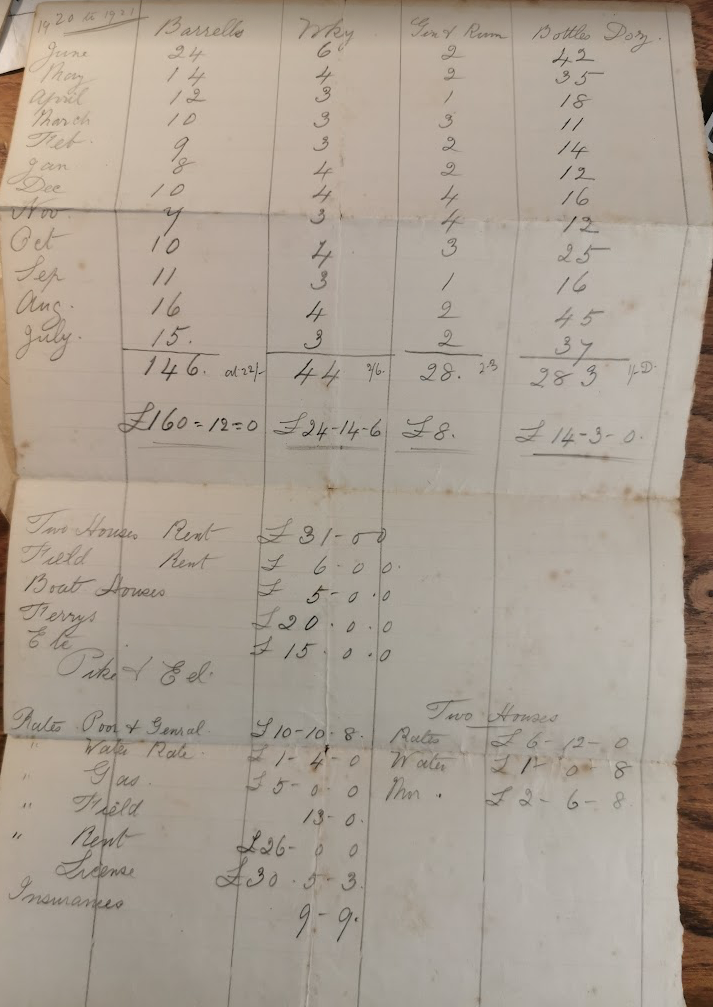 1920 to 1921 Barrells Wky Gin & Rum Bottles Doz.
June 24 6 2 42
May 14 4 2 35
April 12 3 1 18
March 10 3 3 11
Feb. 9 3 2 14
Jan 8 4 2 12
Dec 10 4 4 16
Nov 7 3 4 12
Oct 10 4 3 25
Sep 11 3 1 16
Aug. 16 4 2 45
July. 15. 3 2 37
146. at 22/- 44 28. 283
£160=12=0 £24-14-6 £8. £14-3-0.
Two Houses Rent £31-00
Field Rent £6-0 0.
Boat Houses £5-0.0
Ferrys £20.0.0
Etc £15.0.0
Pike & Eel.
Two Houses
Rates Poor & Genral £10-10-8. Rates £6-12-0
" Water Rate. £1-4-0 Water £1-0-8
" Gas. £5-0-0 £2-6-8
" Field 13-0.
" Rent £26-0 0
License £30.5-3.
Insurances 9-9.